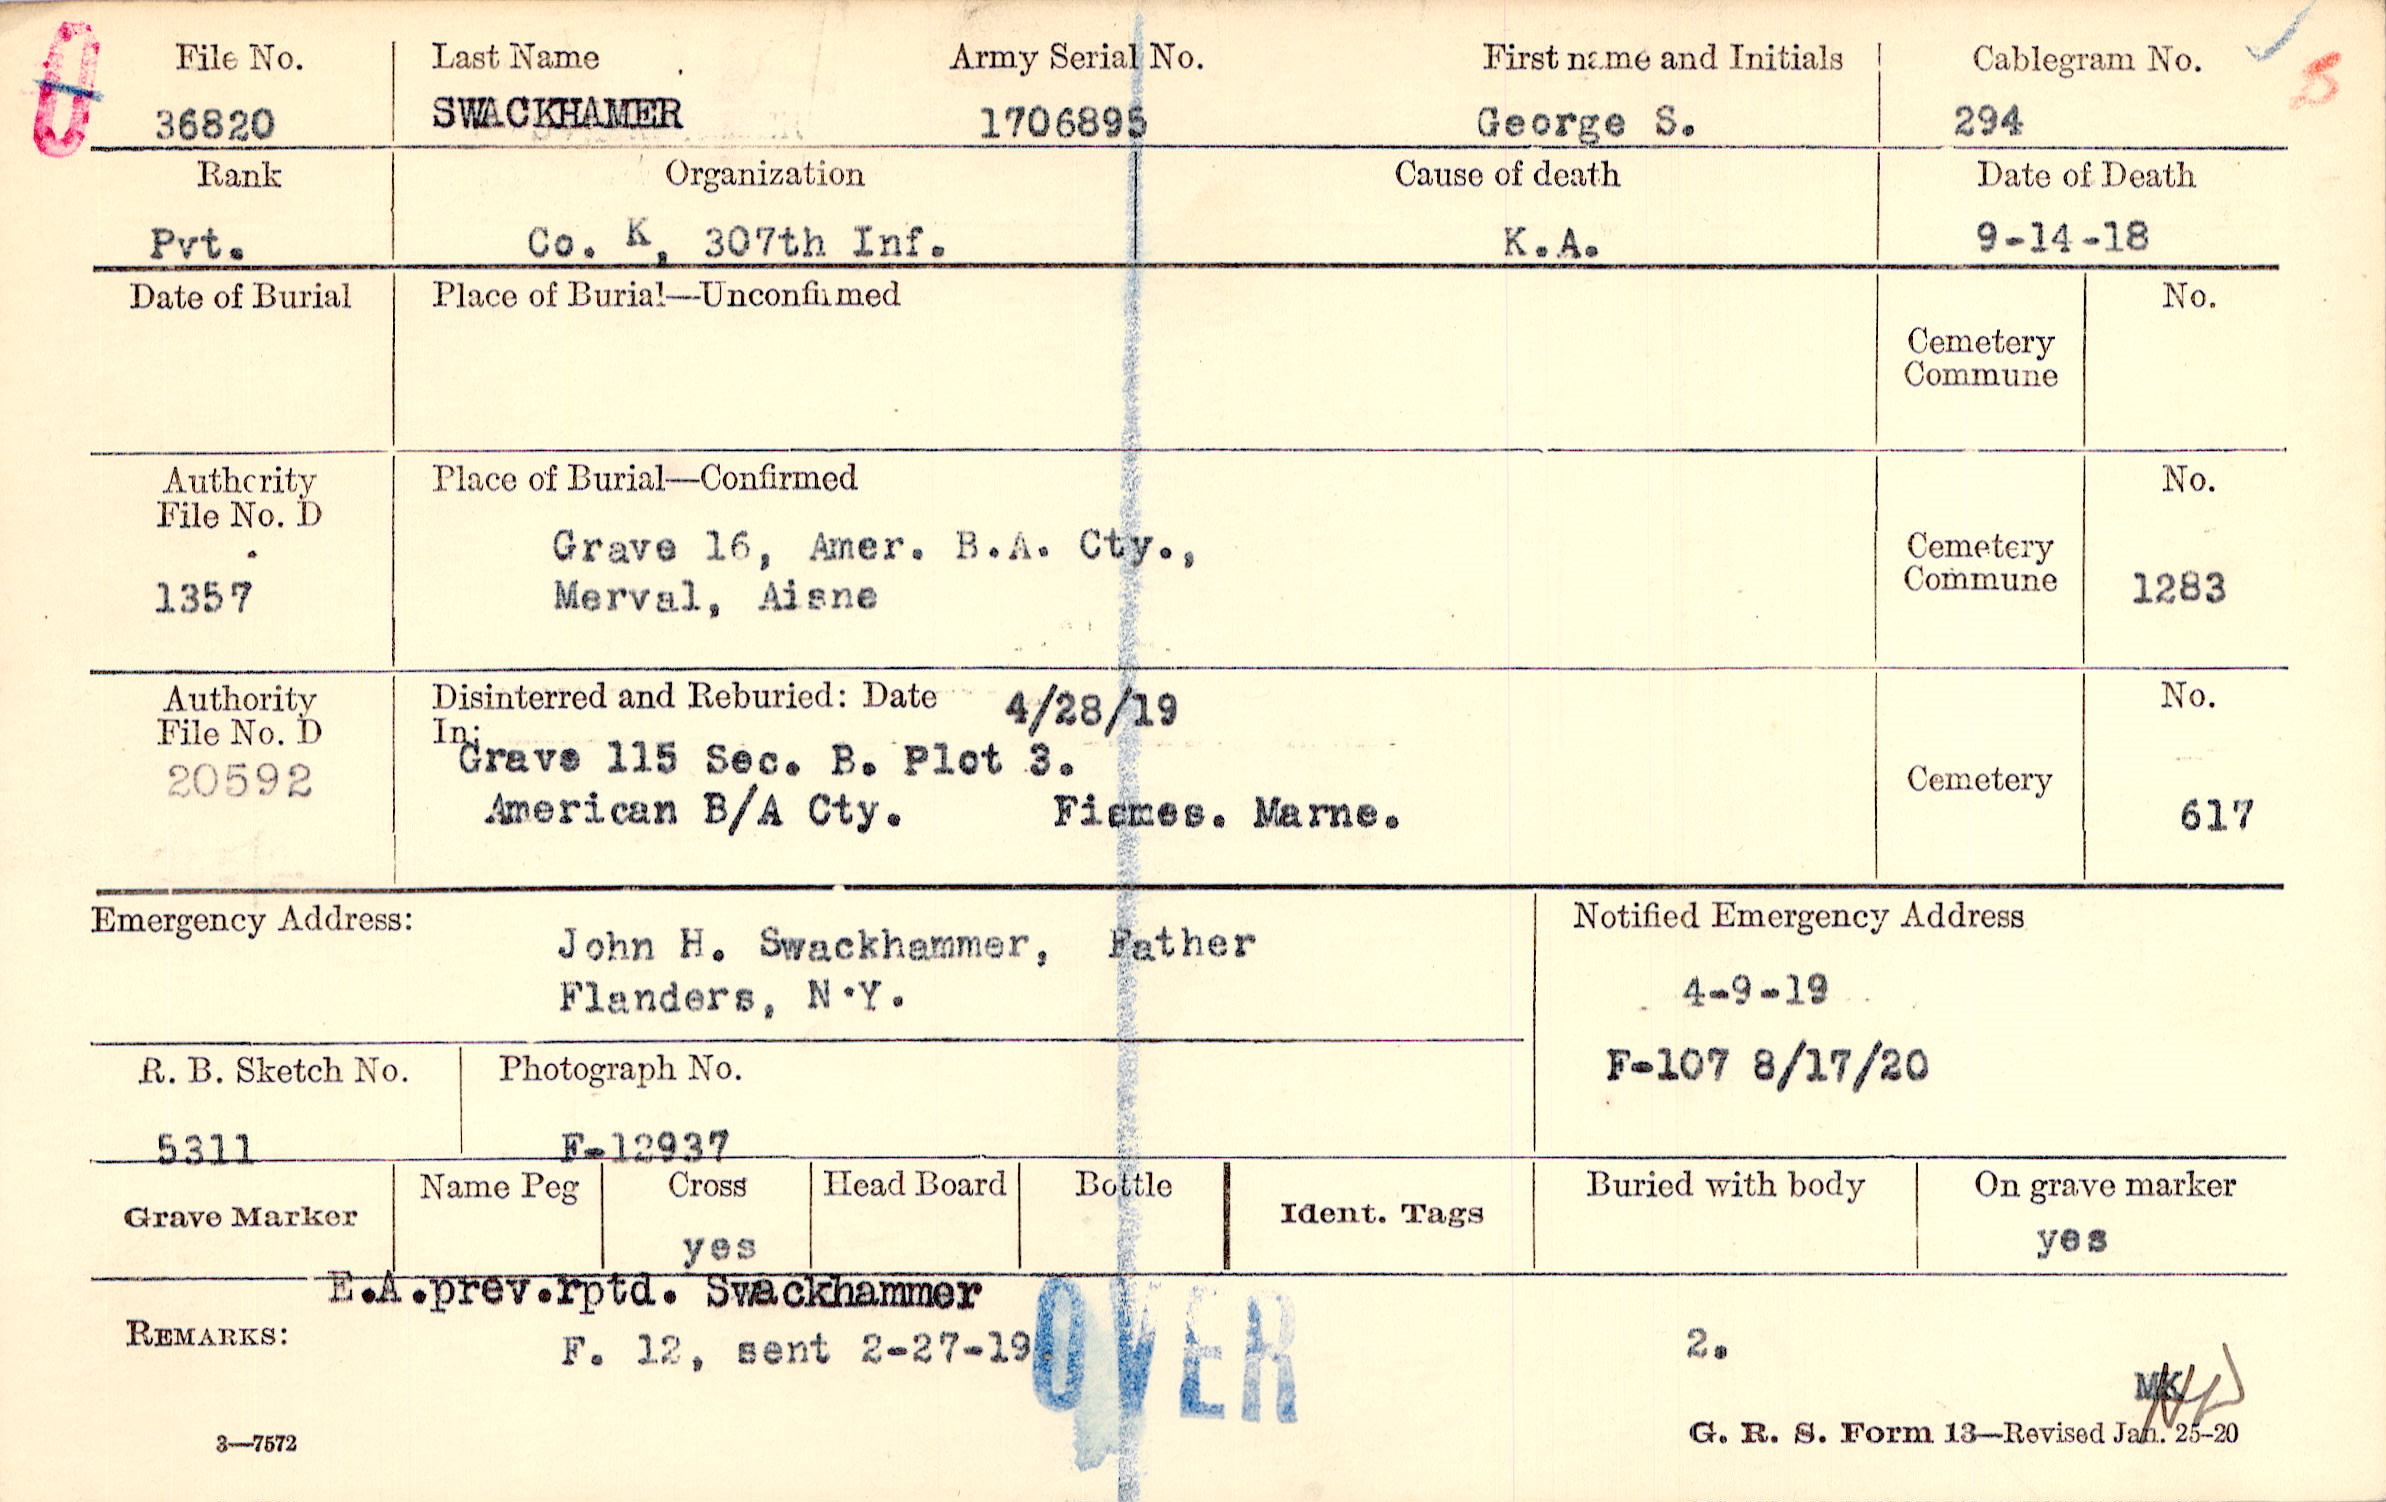 File No. Last Name Army Serial No. First name and Initials Cablegram No.
36820 SWACKHAMER 1706895 George S. 294
Rank Organization Cause of death Date of Death
Pvt. Co. K, 307th Inf. K.A. 9-14-18
Date of Burial Place of Burial—Unconfirmed No.
Cemetery
Commune
Authority Place of Burial—Confirmed No.
File No. D
Grave 16, Amer. B.A. Cty., Cemetery
1357 Merval, Aisne Commune 1283
Authority Disinterred and Reburied: Date 4/28/19 No.
File No. D In:
20592 Grave 115 Sec. B. Plot 3. Cemetery
American B/A Cty. Fismes. Marne. 617
Emergency Address: Notified Emergency Address
John H. Swackhammer, Father
Flanders, N.Y. 4-9-19
R. B. Sketch No. Photograph No. F-107 8/17/20
5311 F-12937
Grave Marker Name Peg Cross Head Board Bottle Ident. Tags Buried with body On grave marker
yes yes
E.A.prev.rptd. Swackhammer
REMARKS: F. 12, sent 2-27-19 OVER 2.
MK
3—7572 G. R. S. Form 13—Revised Jan. 25-20